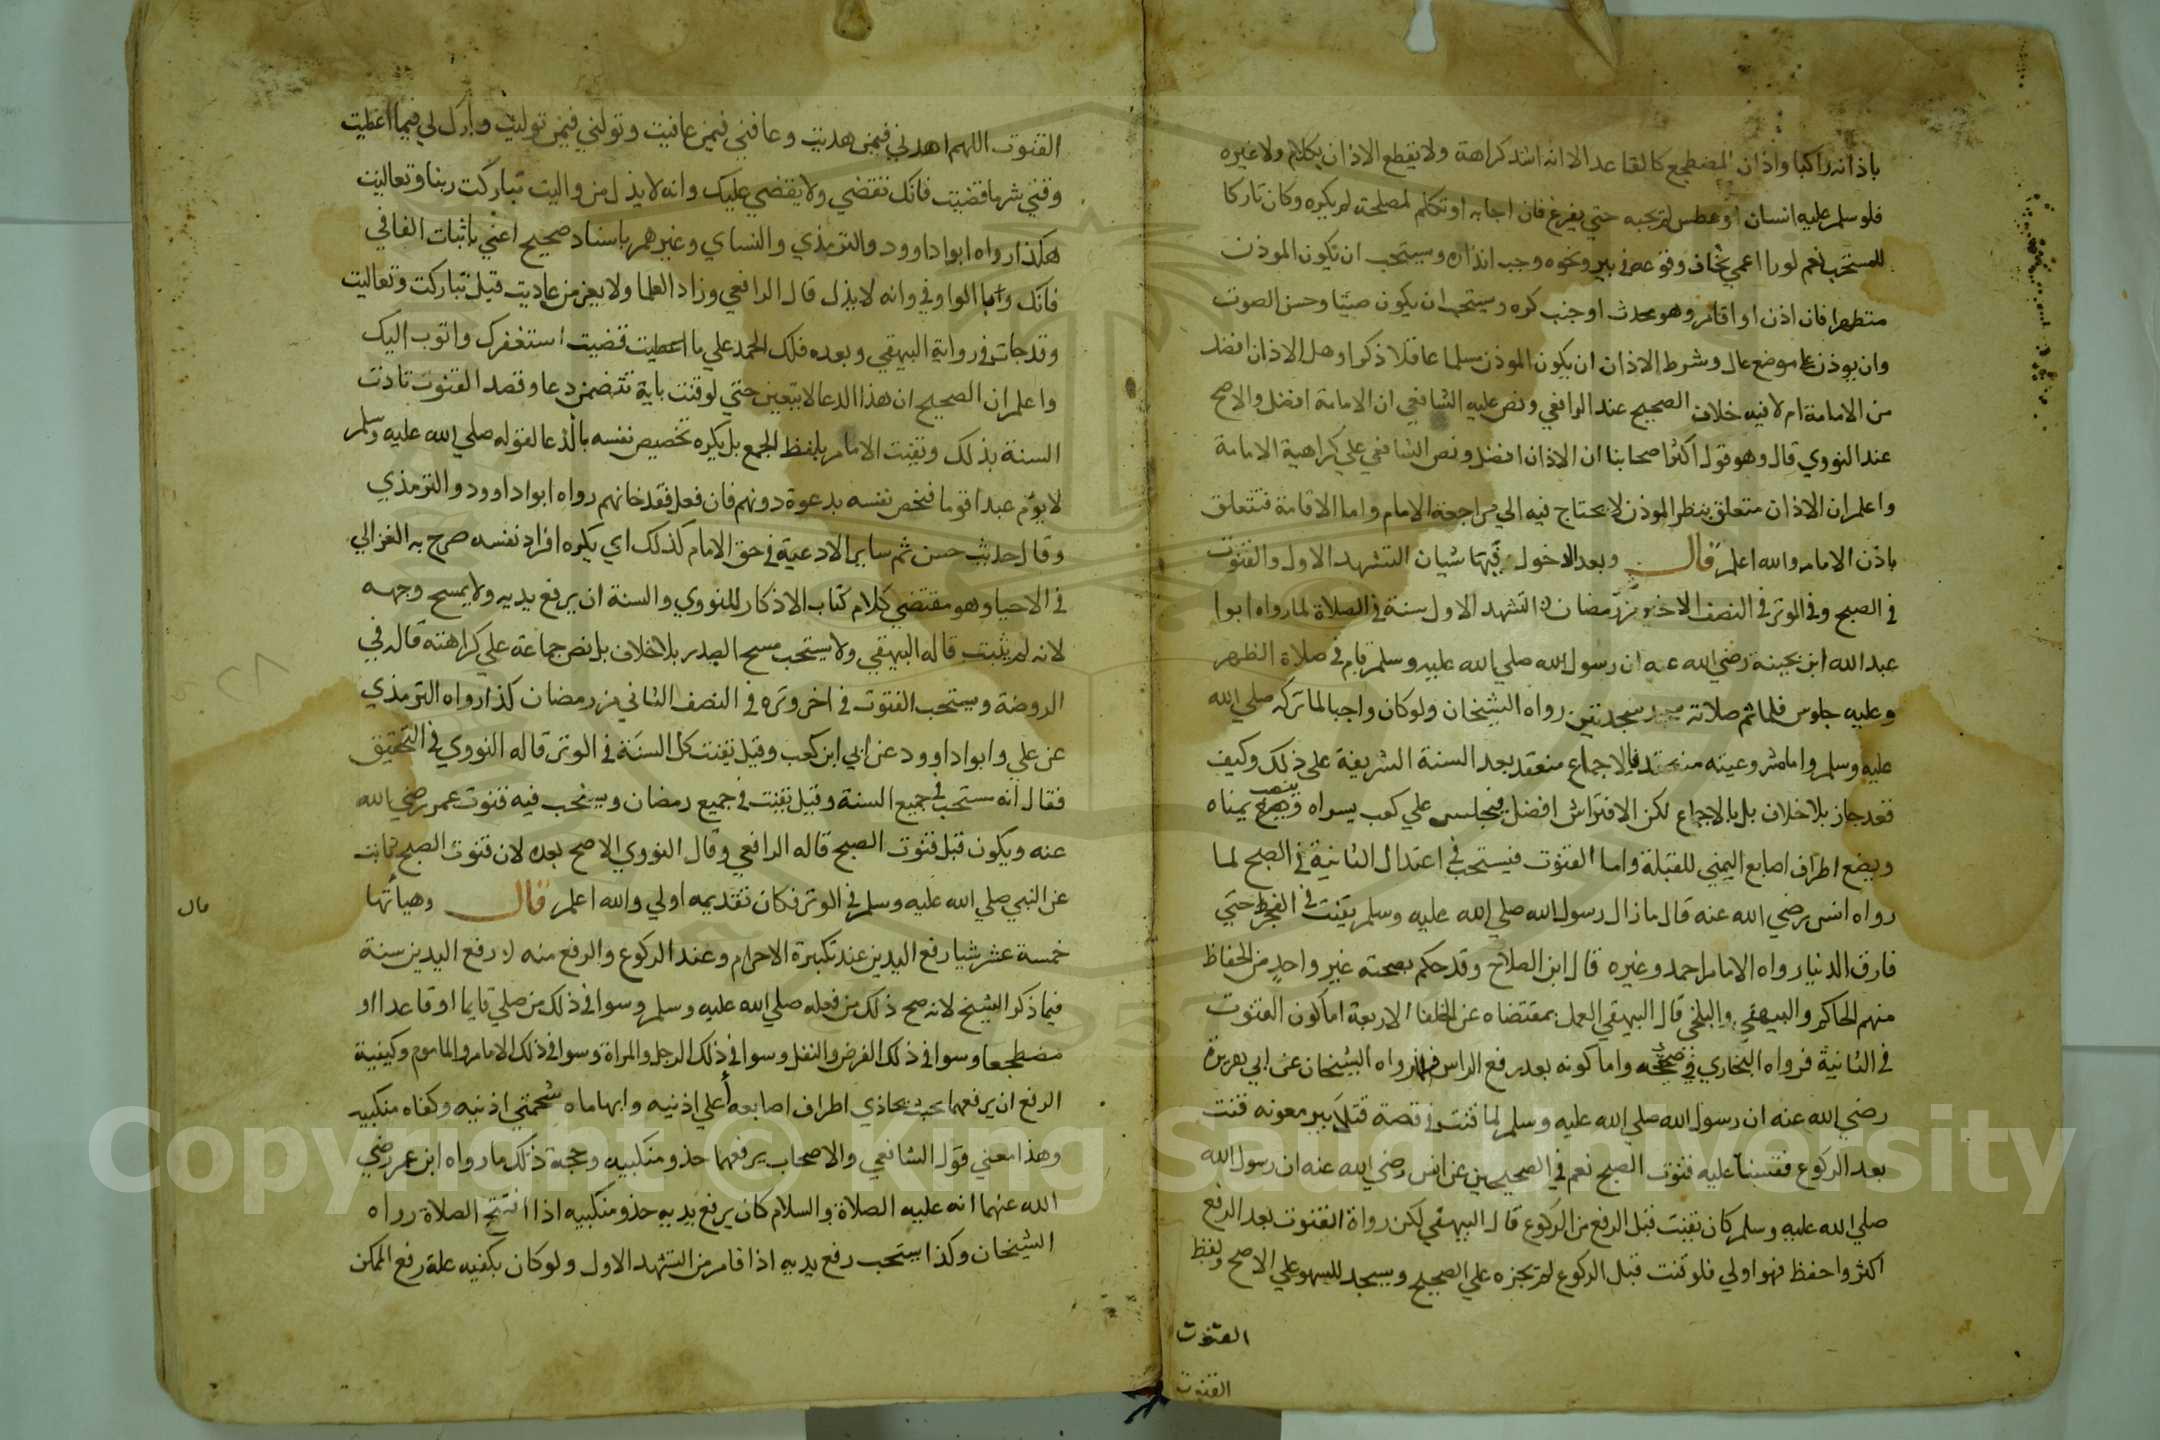 باذانه راكبا واذان المضطجع كالقاعد الا انه اشد كراهة ولا يقطع الاذان بكلام ولا غيره
فلو سلم عليه انسان او عطس لم يجبه حتي يفرغ فان اجابه او تكلم لمصلحة لم يكره وكان تاركا
للمستحب نعم لو راا اعمي يخاف وقوعه في بير ونحوه وجب انذاره ويستحب ان يكون الموذن
متطهرا فان اذن او اقام وهو محدث او جنب كره ويستحب ان يكون صيتا وحسن الصوت
وان يوذن علي موضع عال وشرط الاذان ان يكون الموذن مسلما عاقلا ذكرا وهل الاذان افضل
من الامامة ام لا فيه خلاف الصحيح عند الرافعي ونص عليه الشافعي ان الامامة افضل والاصح
عند النووي قال وهو قول اكثر اصحابنا ان الاذان افضل ونص الشافعي علي كراهية الامامة
واعلم ان الاذان متعلق بنظر الموذن لا يحتاج فيه الي مراجعة الامام واما الاقامة فتتعلق
باذن الامام والله اعلم قال وبعد الدخول فيها شيان التشهد الاول والقنوت
في الصبح وفي الوتر في النصف الاخير من رمضان التشهد الاول سنة في الصلاة لما رواه ابوا
عبد الله ابن بحينة رضي الله عنه ان رسول الله صلي الله عليه وسلم قام في صلاة الظهر
وعليه جلوس فلما تم صلاته سجد سجدتين رواه الشيخان ولو كان واجبا لما تركه صلي الله
عليه وسلم واما مشروعيته فالاجماع منعقد بعد السنة الشريفة علي ذلك وكيف
قعد جاز بلا خلاف بل بالاجماع لكن الافتراش افضل فيجلس علي كعب يسراه وينصب يمناه
ويضع اطراف اصابع اليمني للقبلة واما القنوت فيستحب في اعتدال الثانية في الصبح لما
رواه انس رضي الله عنه قال ما زال رسول الله صلي الله عليه وسلم يقنت في الفجر حتي
فارق الدنيا رواه الامام احمد وغيره قال ابن الصلاح وقد حكم بصحته غير واحد من الحفاظ
منهم الحاكم والبيهقي والبلخي قال البيهقي العمل بمقتضاه عن الخلفا الاربعة اما كون القنوت
في الثانية فرواه البخاري في صحيحه واما كونه بعد رفع الراس فلما رواه الشيخان عن ابي هريرة
رضي الله عنه ان رسول الله صلي الله عليه وسلم لما قنت في قصة قتلا بير معونه قنت
بعد الركوع فقسنا عليه قنوت الصبح نعم في الصحيحين عن انس رضي الله عنه ان رسول الله
صلي الله عليه وسلم كان يقنت قبل الرفع من الركوع قال البيهقي لكن رواة القنوت بعد الرفع
اكثر واحفظ فهو اولي فلو قنت قبل الركوع لم يجزه علي الصحيح ويسجد للسهو علي الاصح ولفظ
القنوت
القنوت
القنوت اللهم اهدني فيمن هديت وعافني فيمن عافيت وتولني فيمن توليت وبارك لي فيما اعطيت
وقني شر ما قضيت فانك تقضي ولا يقضي عليك وانه لا يذل من واليت تباركت ربنا وتعاليت
هكذا رواه ابوا داوود والترمذي والنساي وغيرهم باسناد صحيح اعني باثبات الفا في
فانك واما الواو في وانه لا يذل قال الرافعي وزاد العلما ولا يعز من عاديت قبل تباركت وتعاليت
وقد جات في رواية البيهقي وبعده فلك الحمد علي ما اعطيت قضيت استغفرك واتوب اليك
واعلم ان الصحيح ان هذا الدعا لا يتعين حتي لو قنت باية تتضمن دعا وقصد القنوت تادت
السنة بذلك ويقنت الامام بلفظ الجمع بل يكره تخصيص نفسه بالدعا لقوله صلي الله عليه وسلم
لا يوم عبد اقوما فيخص نفسه بدعوة دونهم فان فعل فقد خانهم رواه ابوا داوود والترمذي
وقال حديث حسن ثم ساير الادعية في حق الامام كذلك اي يكره افراد نفسه صرح به الغزالي
في الاحيا وهو مقتضي كلام كتاب الاذكار للنووي والسنة ان يرفع يديه ولا يمسح وجهه
لانه لم يثبت قاله البيهقي ولا يستحب مسح الصدر بلا خلاف بل نص جماعة علي كراهته قاله في
الروضة ويستحب القنوت في اخر وتره في النصف الثاني من رمضان كذا رواه الترمذي
عن علي وابوا داوود عن ابي ابن كعب وقيل يقنت كل السنة في الوتر قاله النووي في التحقيق
فقال انه مستحب في جميع السنة وقيل يقنت في جميع رمضان ويستحب فيه قنوت عمر رضي الله
عنه ويكون قبل قنوت الصبح قاله الرافعي وقال النووي الاصح بعده لان قنوت الصبح ثابت
عن النبي صلي الله عليه وسلم في الوتر فكان تقديمه اولي والله اعلم قال وهيأتها
خمسة عشر شيا رفع اليدين عند تكبيرة الاحرام وعند الركوع والرفع منه رفع اليدين سنة
فيما ذكر الشيخ لانه صح ذلك من فعله صلي الله عليه وسلم وسوا في ذلك من صلي قايما او قاعدا او
مضطجعا وسوا في ذلك الفرض والنفل وسوا في ذلك الرجل والمراة وسوا في ذلك الامام والماموم وكيفية
الرفع ان يرفعهما بحيث يحاذي اطراف اصابعه أعلي اذنيه وابهاماه شحمتي اذنيه وكفاه منكبيه
وهذا معني قول الشافعي والاصحاب يرفعهما حذو منكبيه وحجة ذلك ما رواه ابن عمر رضي
الله عنهما انه عليه الصلاة والسلام كان يرفع يديه حذو منكبيه اذا افتتح الصلاة رواه
الشيخان وكذا يستحب رفع يديه اذا قام من التشهد الاول ولو كان بكفيه علة رفع الممكن
قال
٢٨
Copyright © King Saud University
1957